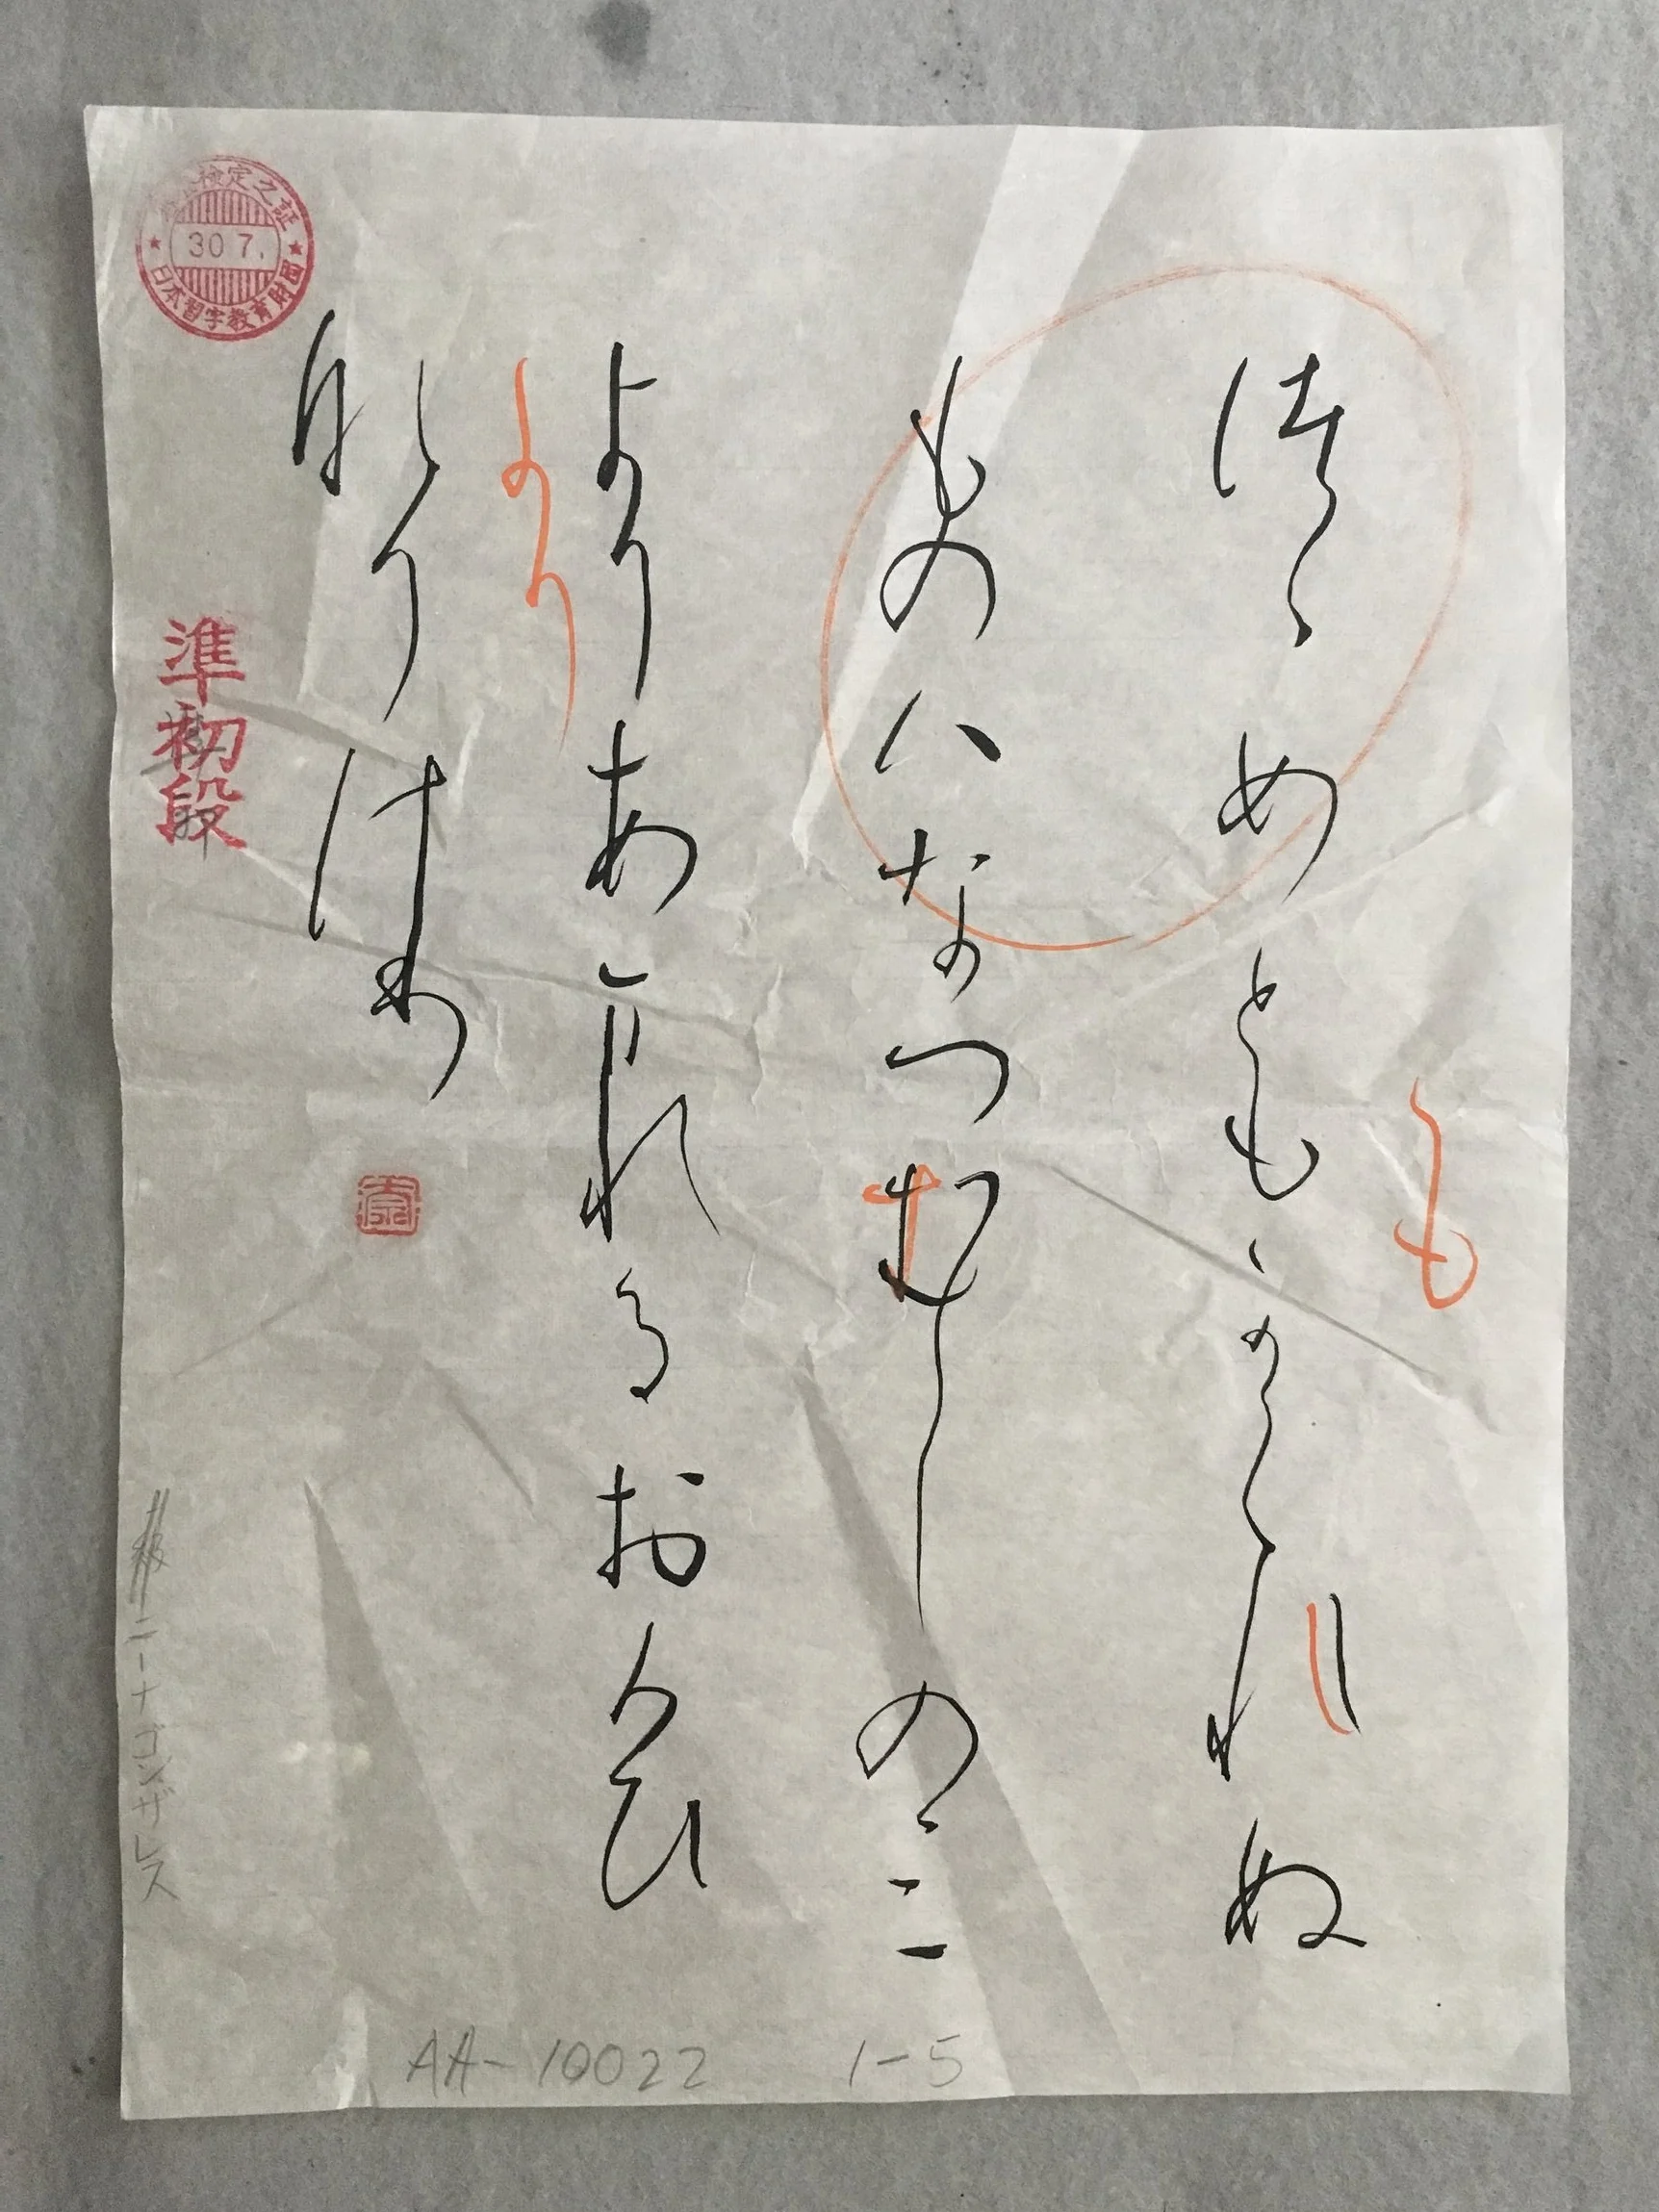 つゝめともかくれぬ
ものハなつむしのみ
よりあまれるおもひ
なりけり
も
より
準初段
検定之証
30 7.
日本習字教育財団
ニーナゴンザレス
AA-10022 1-5